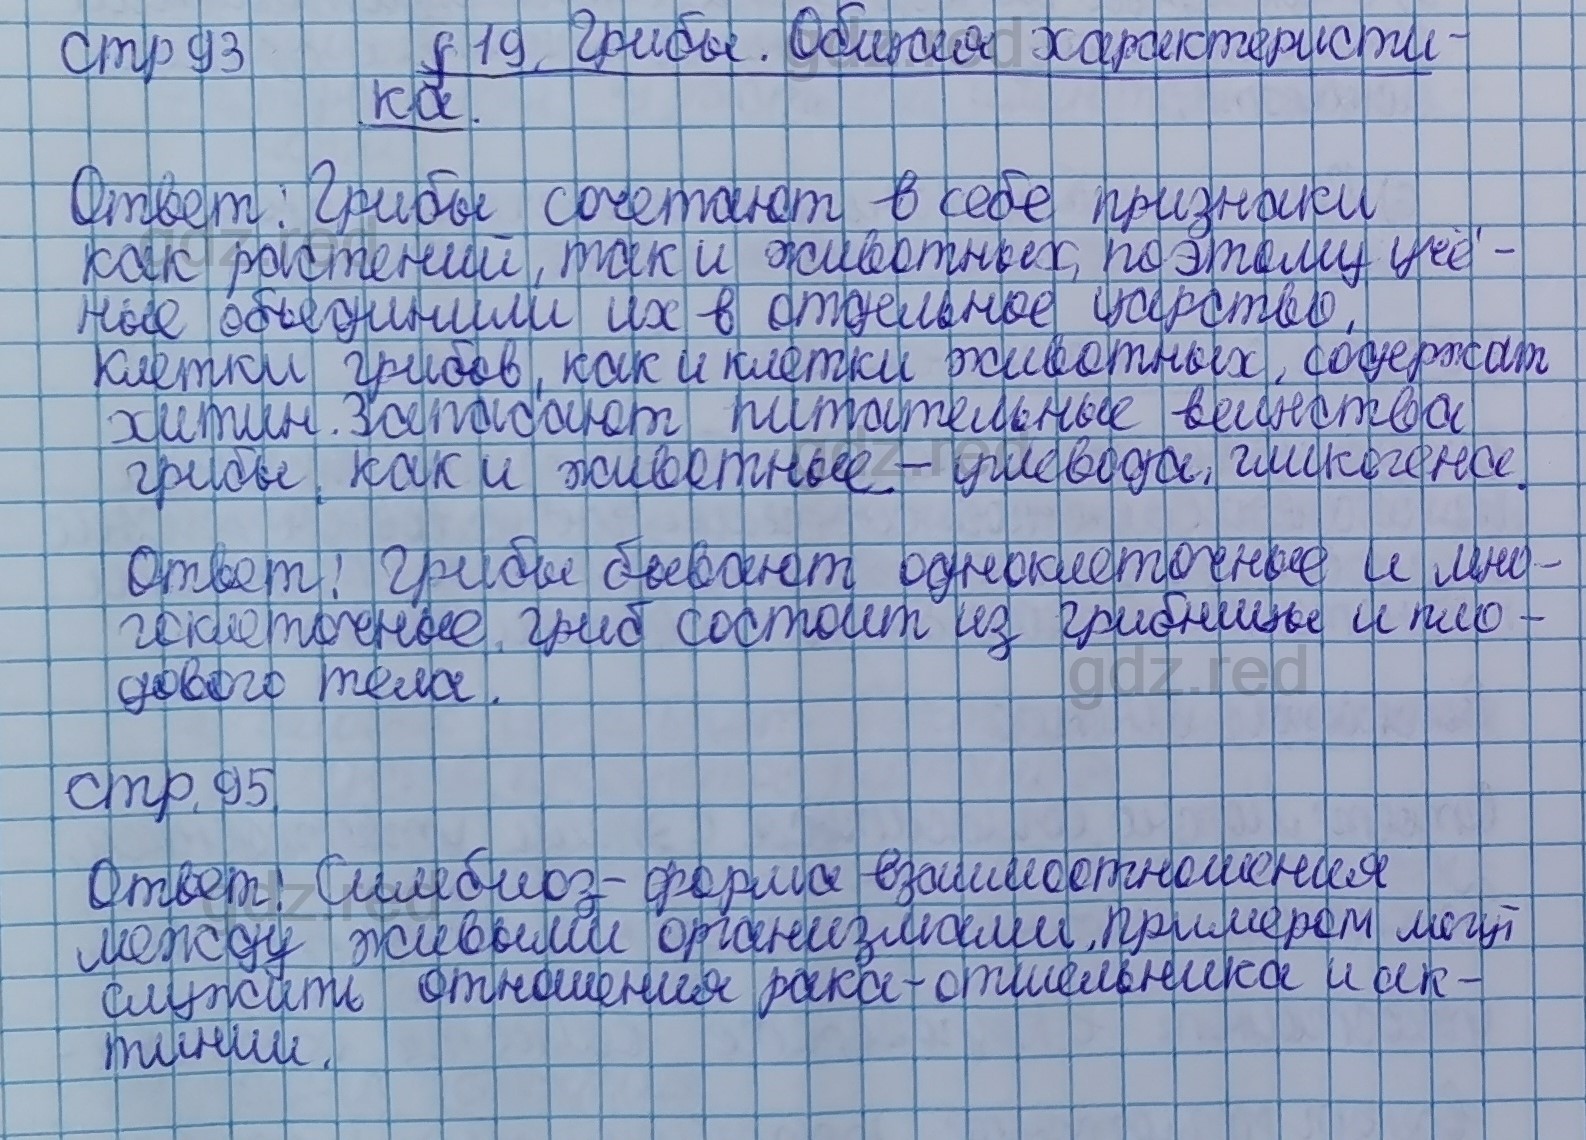 стр 93 § 19. Грибы. Общая характеристи-
ка.
Ответ: Грибы сочетают в себе признаки
как растений, так и животных, поэтому учё-
ные объединили их в отдельное царство.
Клетки грибов, как и клетки животных, содержат
хитин. Запасают питательные вещества
грибы, как и животные – углевода, гликогена.
Ответ: Грибы бывают одноклеточные и мно-
гоклеточные. гриб состоит из грибницы и пло-
дового тела.
gdz.red
стр. 95
Ответ: Симбиоз – форма взаимоотношения
между живыми организмами, примером могут
служить отношения рака-отшельника и ак-
тинии.